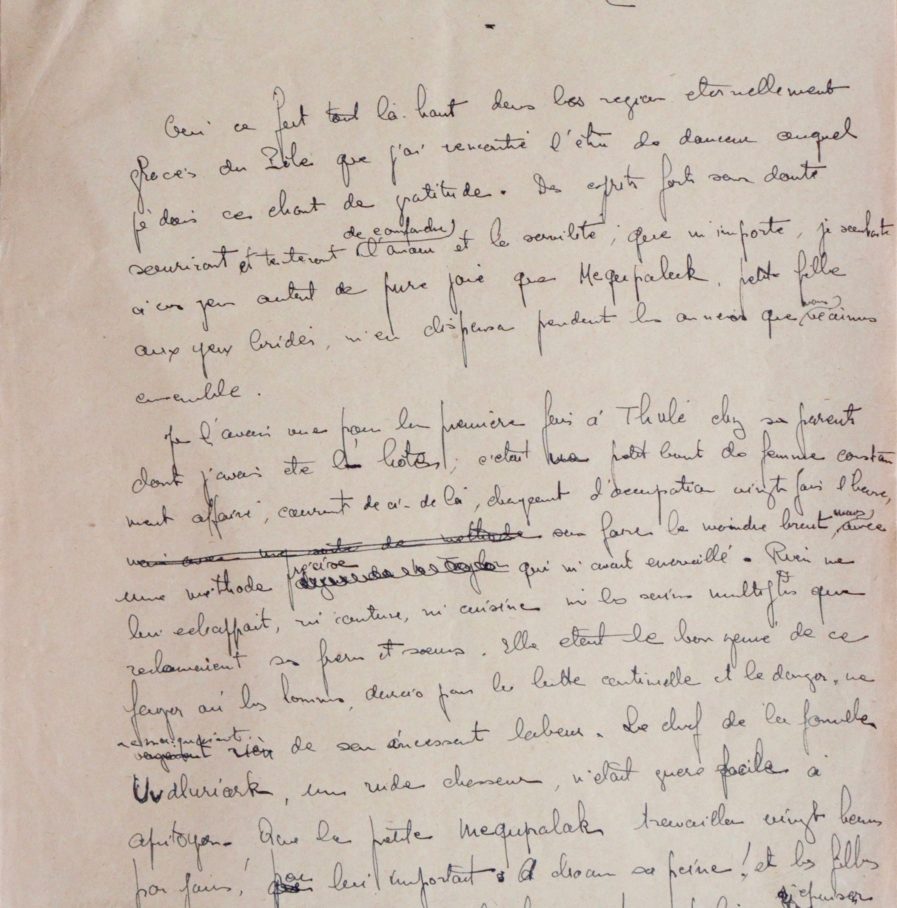 Oui ce fut tout là-haut dans les région eternellement
glacées du Pôle que j'ai rencontré l'être de douceur auquel
je dois ce chant de gratitude. Des esprits forts sans doute
souriront et tenteront de confondre l'amour et la servilité ; que m'importe, je souhaite
à ces gens autant de pure joie que Mequpaluk, petite fille
aux yeux bridés, m'en dispensa pendant les années que nous vécûmes
ensemble.
Je l'avais vue pour la première fois à Thulé chez ses parents
dont j'avais été l' hôte ; c'était un petit bout de femme constam
ment affairé, courant de ci-de là, changeant d'occupation vingt fois l'heure,
mais avec une sorte de méthode sans faire le moindre bruit, mais avec
une méthode précise qui m'avait émerveillé. Rien ne
lui echappait, ni couture, ni cuisine ni les soins multiples que
reclamaient ses frères et soeurs. Elle etait le bon génie de ce
foyer où les hommes, durcis par la lutte continuelle et le danger, ne
remarquaient rien de son incessant labeur. Le chef de la famille
Uvdluriark, un rude chasseur, n'était guère facile à
apitoyer. Que la petite Mequpaluk travailla vingt heures
par jours, peu lui importait ; A chacun sa peine ! et les filles